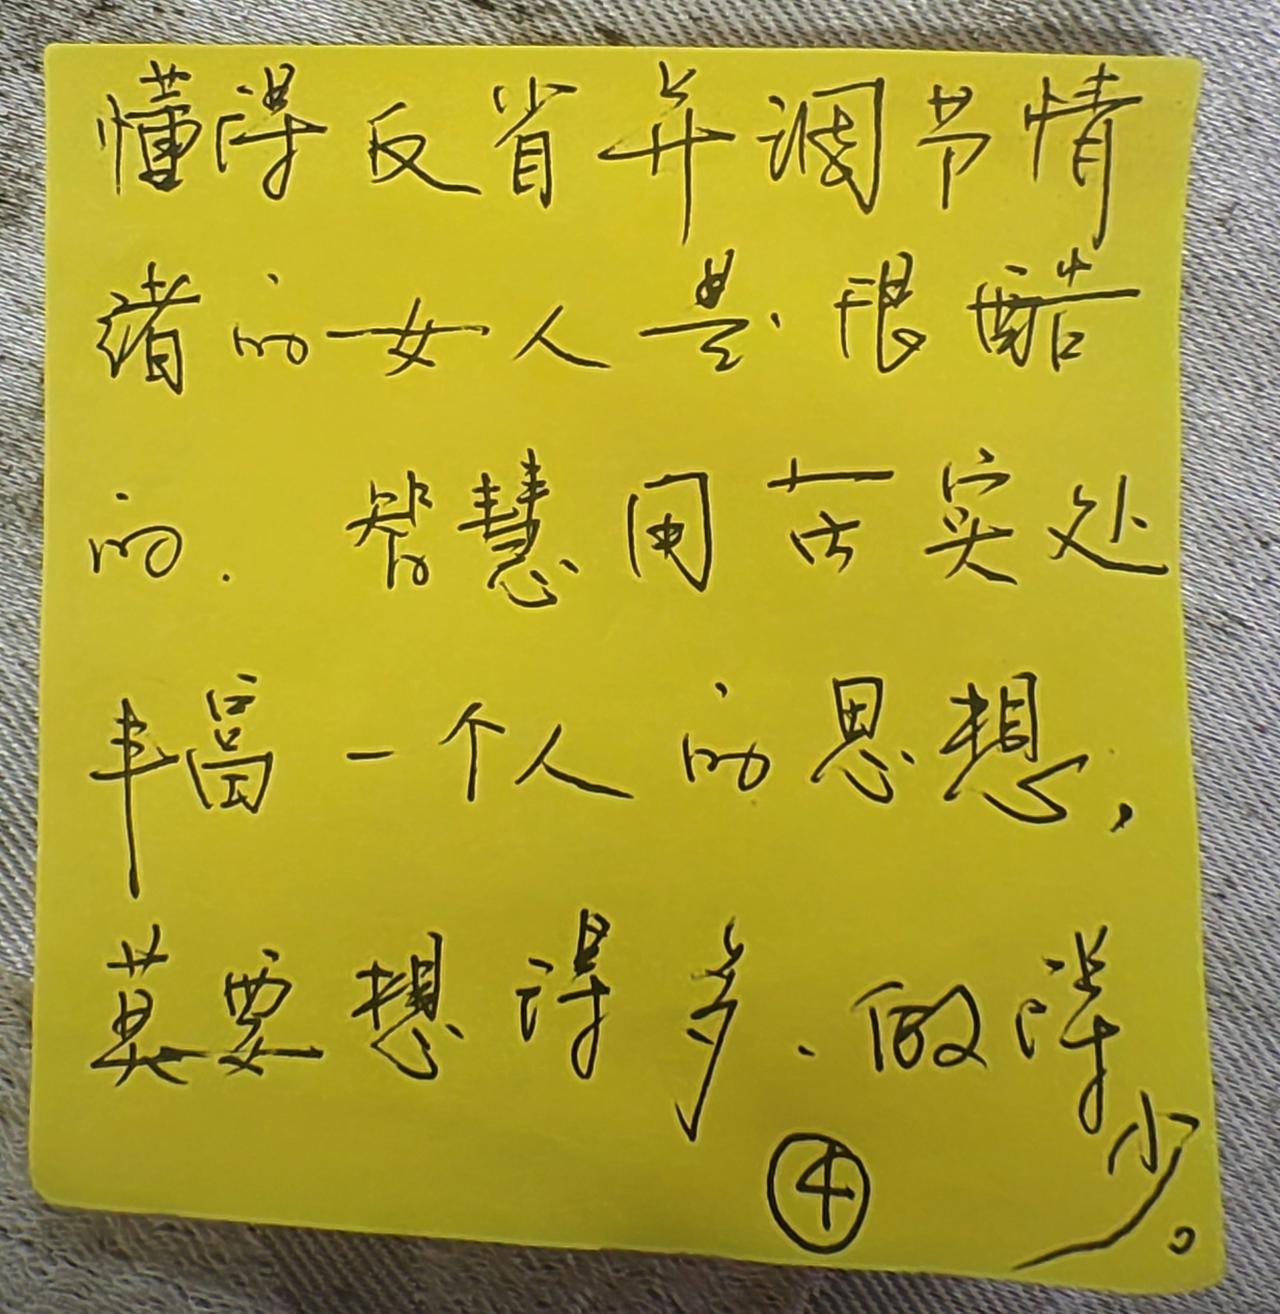 懂得反省并调节情
绪的女人是很酷
的. 智慧用于实处
丰富一个人的思想,
莫要想得多、做得
少。
④